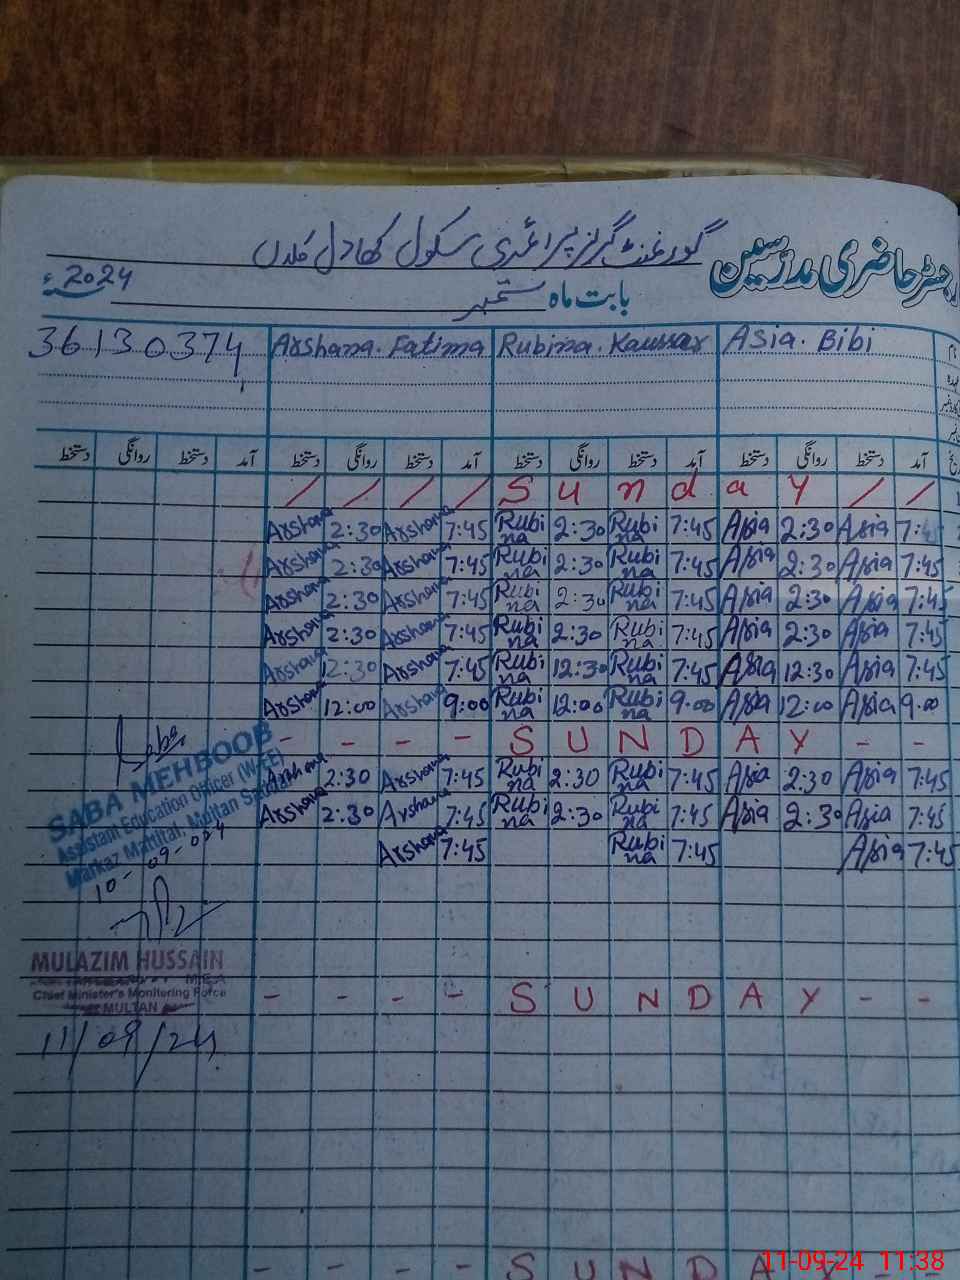 رجسٹر حاضری مدرسین گورنمنٹ گرلز پرائمری سکول
بابت ماہ ستمبر 2024ء
Asia. Bibi Rubina. Kaussar Arshana. Fatima 36130374
آمد دستخط روانگی دستخط آمد دستخط روانگی دستخط آمد دستخط روانگی دستخط آمد دستخط روانگی دستخط
/ / / / S u n d a y / /
Arshana 2:30 Arshana 7:45 Rubina 2:30 Rubina 7:45 Asia 2:30 Asia 7:45
Arshana 2:30 Arshana 7:45 Rubina 2:30 Rubina 7:45 Asia 2:30 Asia 7:45
Arshana 2:30 Arshana 7:45 Rubina 2:30 Rubina 7:45 Asia 2:30 Asia 7:45
Arshana 2:30 Arshana 7:45 Rubina 2:30 Rubina 7:45 Asia 2:30 Asia 7:45
Arshana 12:30 Arshana 7:45 Rubina 12:30 Rubina 7:45 Asia 12:30 Asia 7:45
Arshana 12:00 Arshana 9:00 Rubina 12:00 Rubina 9:00 Asia 12:00 Asia 9:00
- - - - S U N D A Y - -
Arshana 2:30 Arshana 7:45 Rubina 2:30 Rubina 7:45 Asia 2:30 Asia 7:45
Arshana 2:30 Arshana 7:45 Rubina 2:30 Rubina 7:45 Asia 2:30 Asia 7:45
Arshana 7:45 Rubina 7:45 Asia 7:45
SABA MEHBOOB
Assistant Education Officer (W-EE)
Markaz Matital, Multan Saddar
10-09-024
MULAZIM HUSSAIN
M.E.A
Chief Minister's Monitoring Force
MULTAN
11/09/24
- - - - S U N D A Y - -
- - - - S U N D A Y - -
11-09-24 11:38